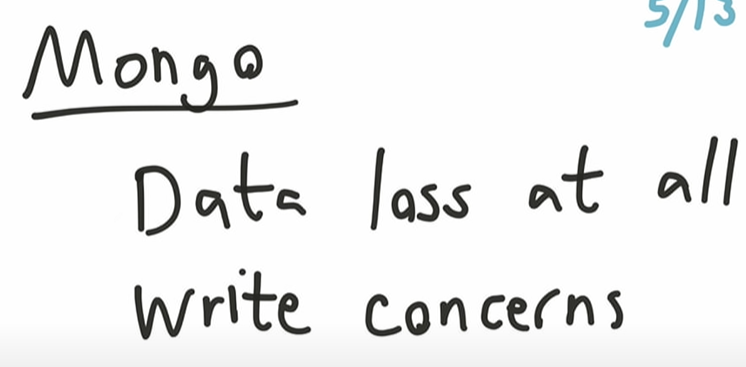 5/13
Mongo
Data loss at all
Write concerns